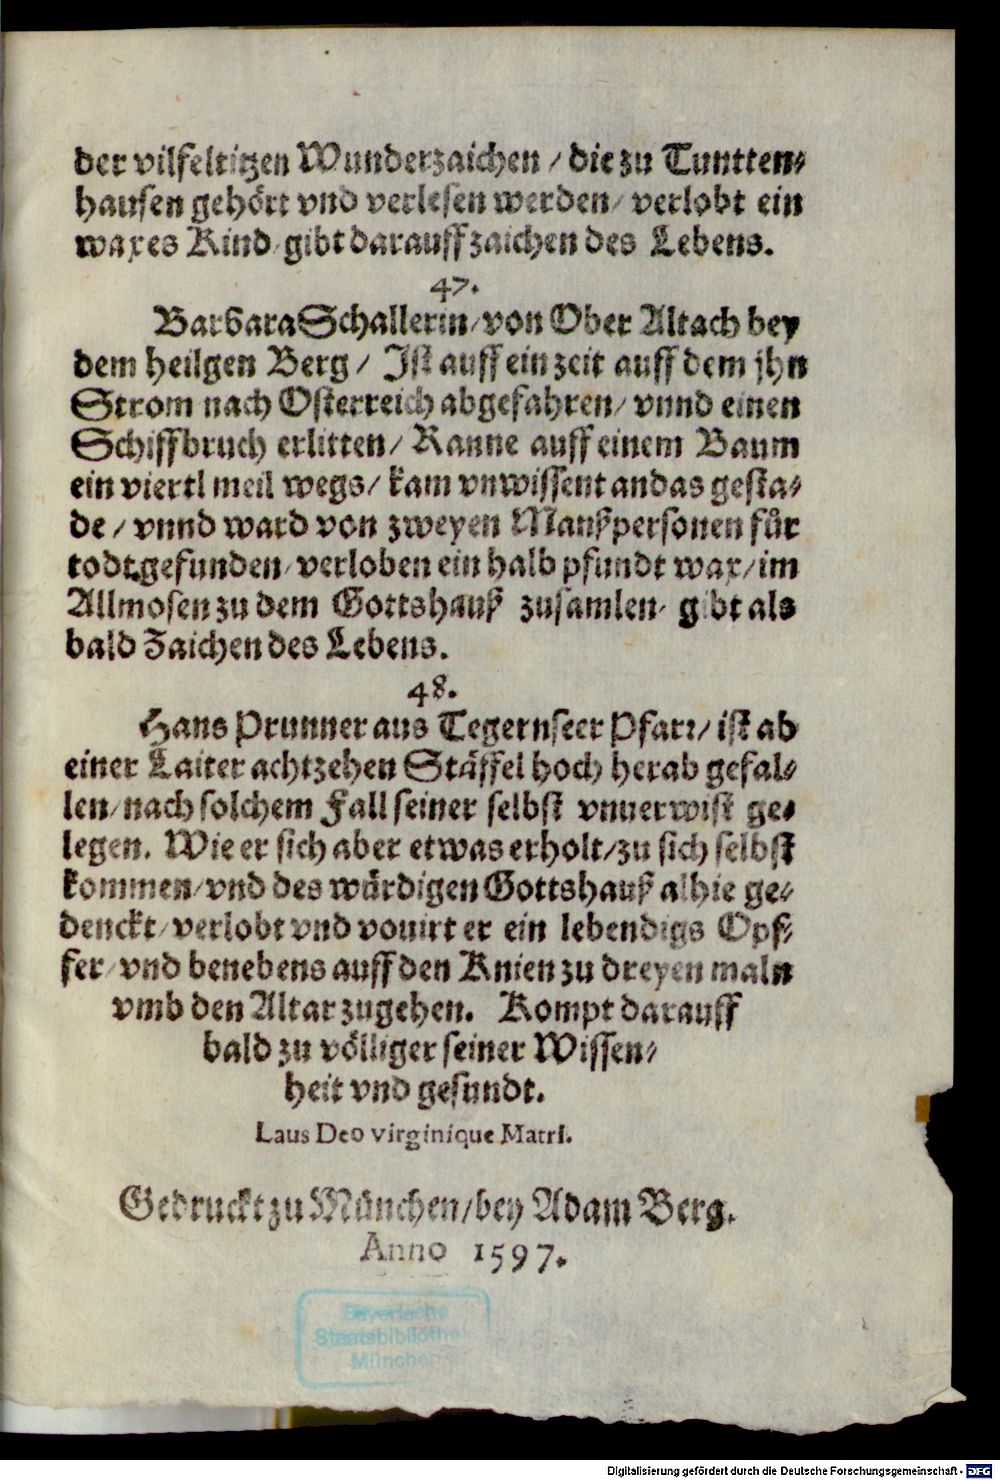 der vilfeltigen Wunderzaichen / die zu Tuntten⸗
hausen gehört vnd verlesen werden / verlobt ein
waxes Kind / gibt darauff zaichen des Lebens.
47.
Barbara Schallerin / von Ober Altach bey
dem heilgen Berg / Ist auff ein zeit auff dem jhn
Strom nach Osterreich abgefahren / vnnd einen
Schiffbruch erlitten / Ranne auff einem Baum
ein viertl meil wegs / kam vnwissent an das gesta⸗
de / vnnd ward von zweyen Manßpersonen für
todt gefunden / verloben ein halb pfundt wax / im
Allmosen zu dem Gottshauß zusamlen / gibt als
bald Zaichen des Lebens.
48.
Hans Prunner aus Tegernseer Pfarr / ist ab
einer Laiter achtzehen Stäffel hoch herab gefal⸗
len / nach solchem Fall seiner selbst vnuerwist ge⸗
legen. Wie er sich aber etwas erholt / zu sich selbst
kommen / vnd des würdigen Gottshauß alhie ge⸗
denckt / verlobt vnd vouirt er ein lebendigs Opf⸗
fer / vnd benebens auff den Knien zu dreyen maln
vmb den Altar zugehen. Kompt darauff
bald zu völliger seiner Wissen⸗
heit vnd gesundt.
Laus Deo virginique Matri.
Gedruckt zu München / bey Adam Berg.
Anno 1597.
Bayerische
Staatsbibliothek
München
Digitalisierung gefördert durch die Deutsche Forschungsgemeinschaft - DFG